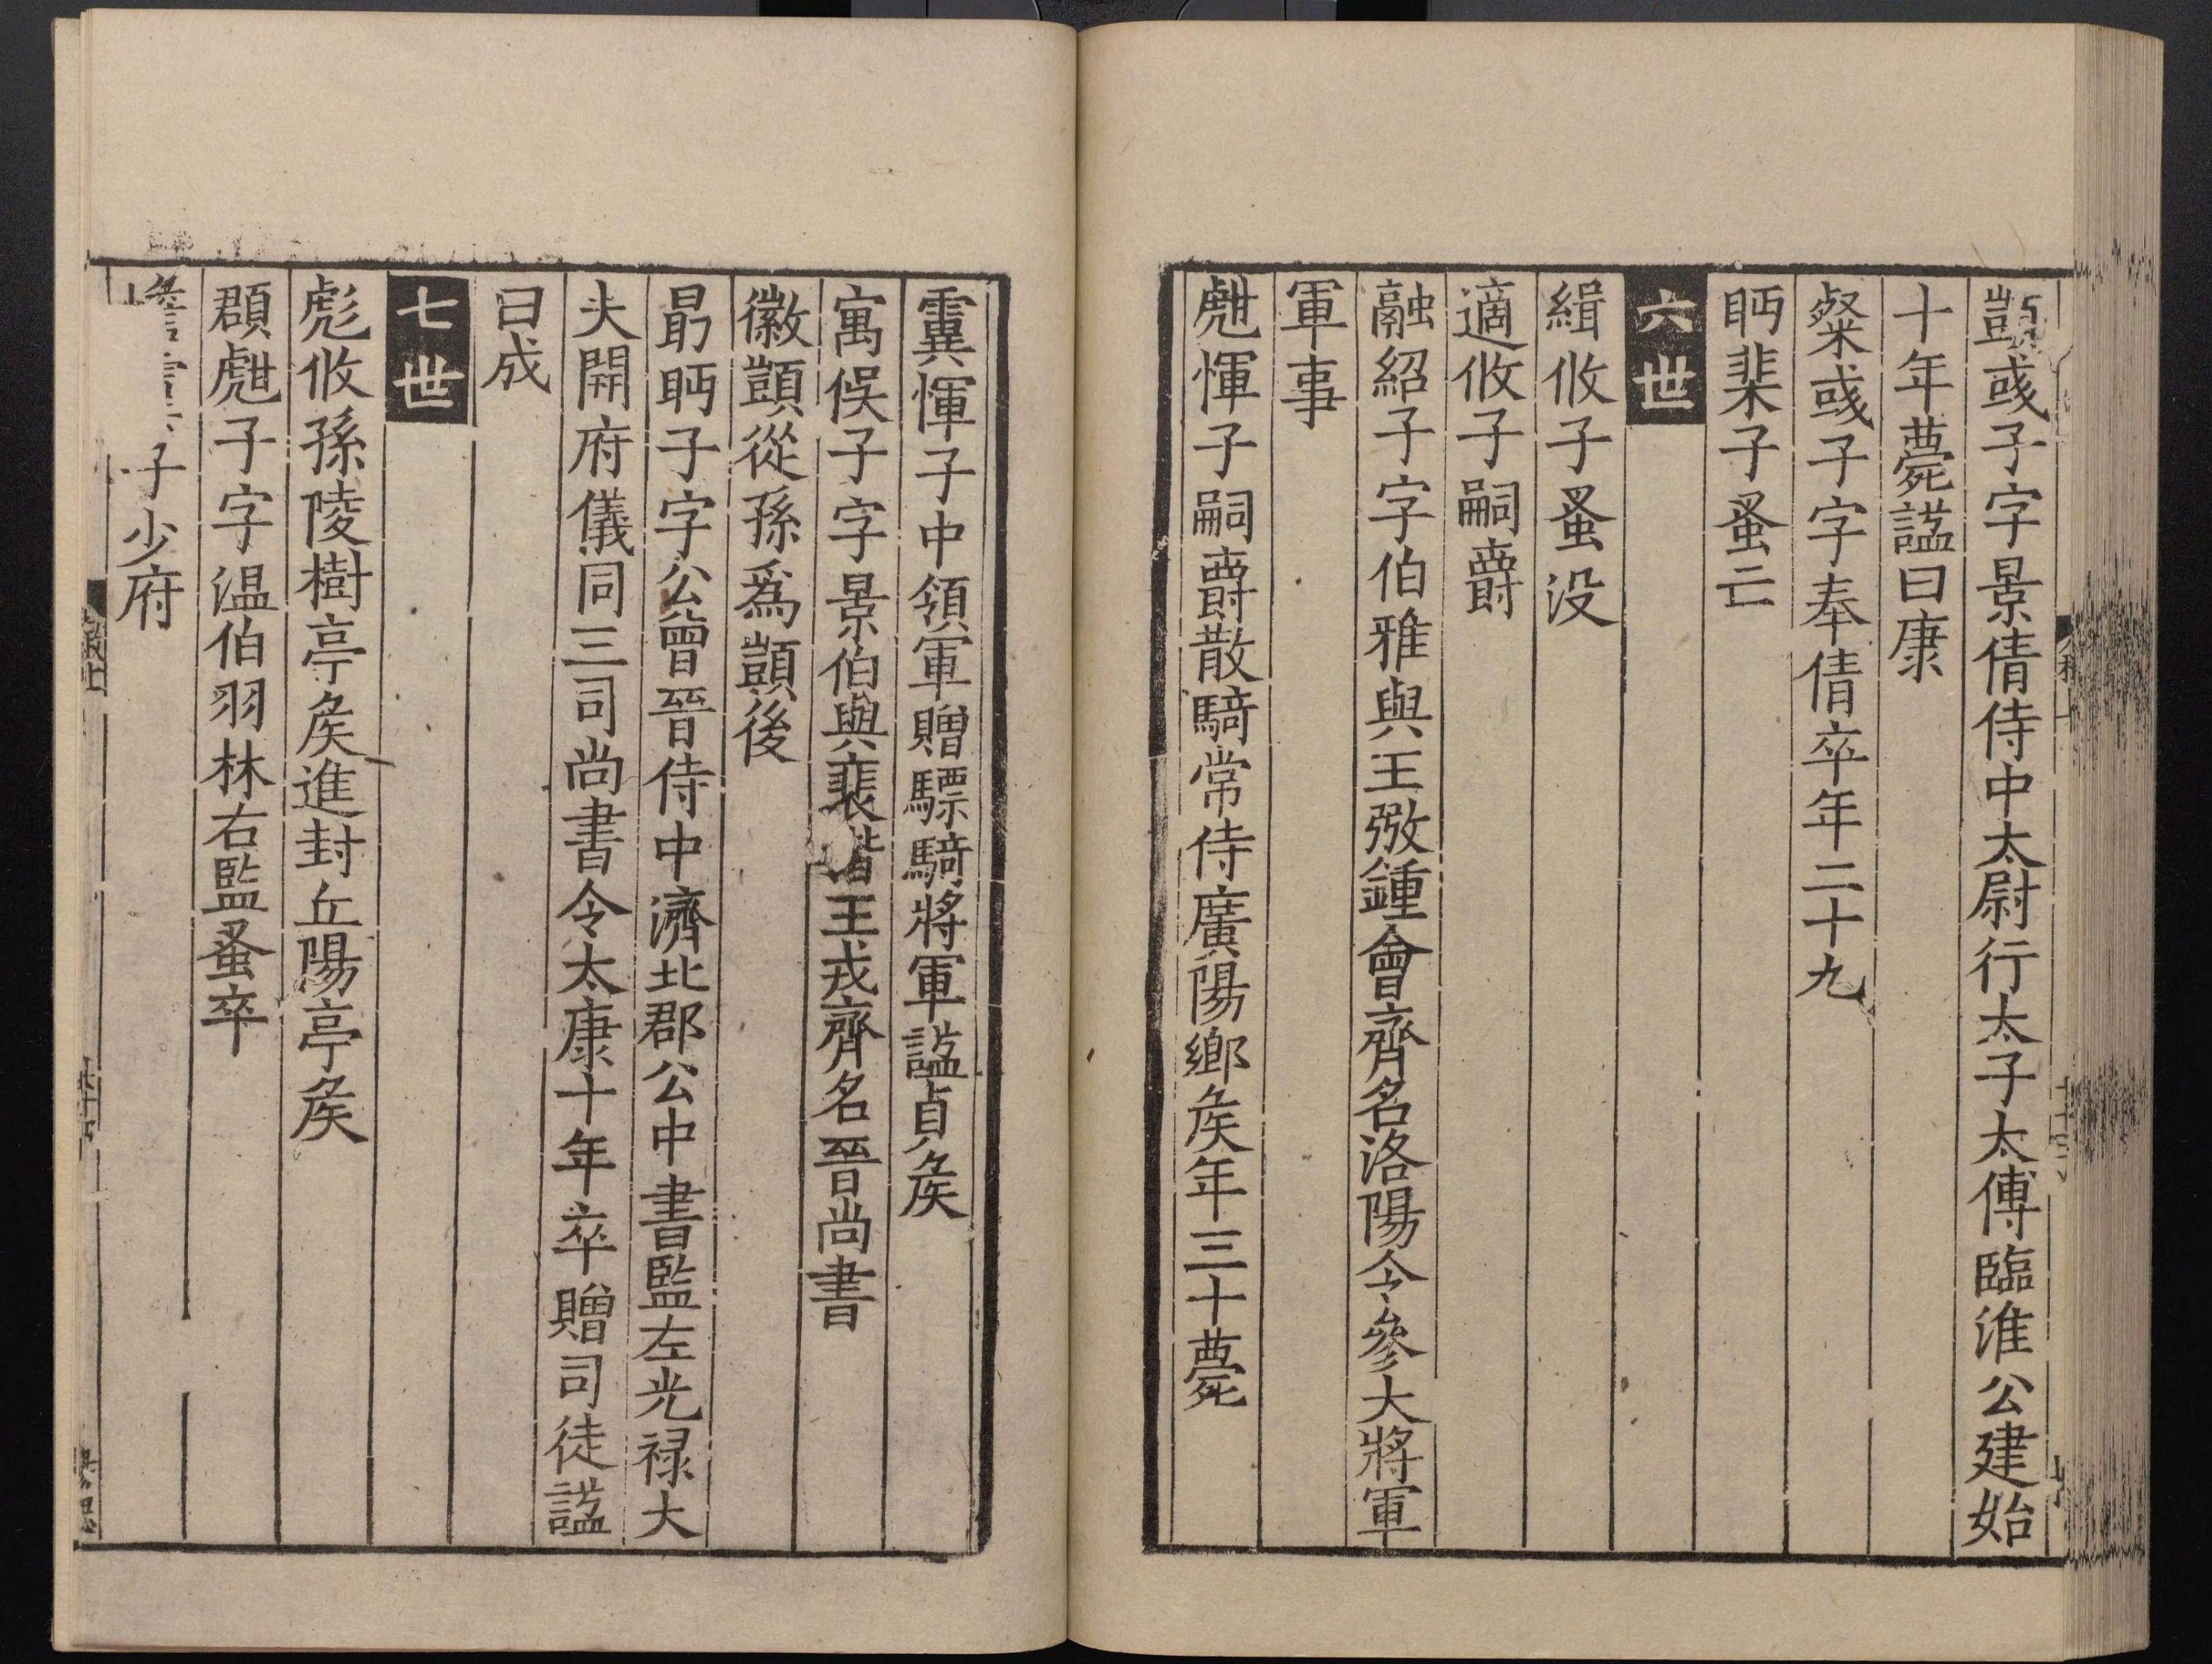 顗彧子字景倩侍中太尉行太子太傅臨淮公建始
十年薨謚曰康
粲彧子字奉倩卒年二十九
眄棐子蚤亡
六世
緝攸子蚤没
適攸子嗣爵
融紹子字伯雅與王弼鍾會齊名洛陽令參大將軍
軍事
甝惲子嗣爵散騎常侍廣陽鄉矦年三十薨
霬惲子中領軍贈驃騎將軍謚貞矦
寓俁子字景伯與裴楷王戎齊名晉尚書
徽顗從孫爲顗後
勗眄子字公曾晉侍中濟北郡公中書監左光禄大
夫開府儀同三司尚書令太康十年卒贈司徒謚
曰成
七世
彪攸孫陵樹亭矦進封丘陽亭矦
頵甝子字温伯羽林右監蚤卒
子少府